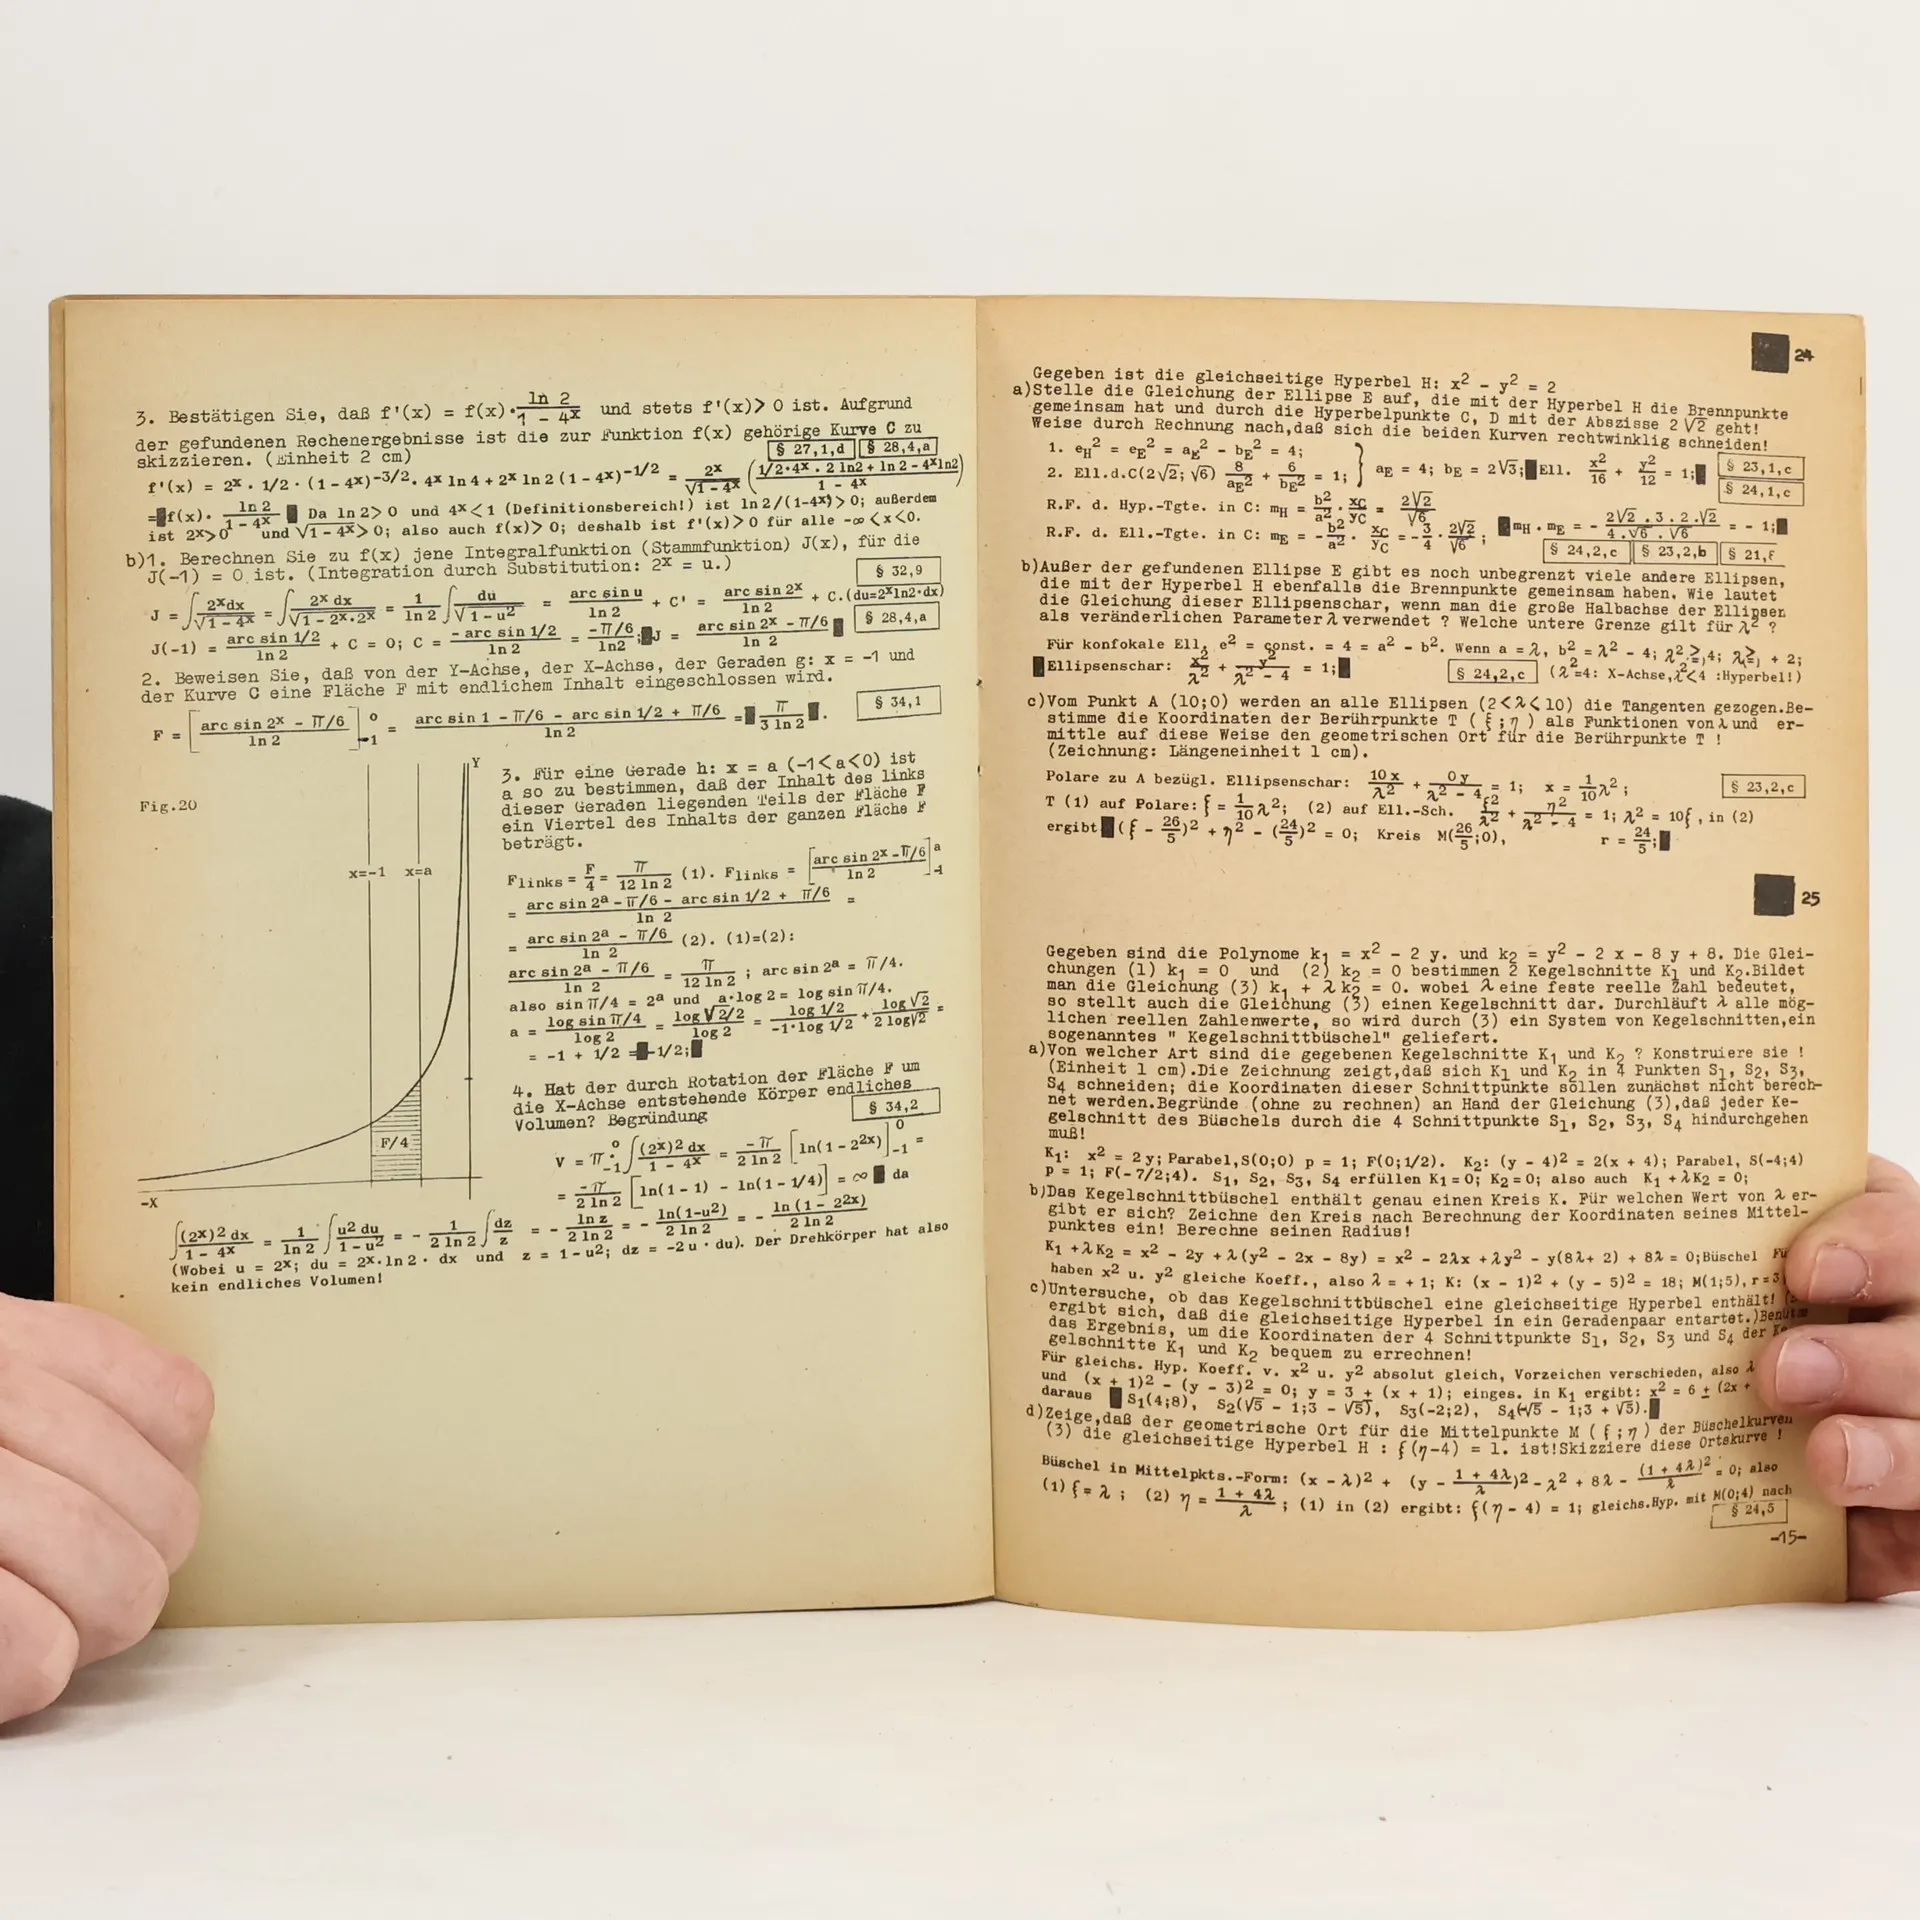 3. Bestätigen Sie, daß f'(x) = f(x)·ln 2/(1 - 4ˣ) und stets f'(x)> 0 ist. Aufgrund
der gefundenen Rechenergebnisse ist die zur Funktion f(x) gehörige Kurve C zu
skizzieren. (Einheit 2 cm) § 27,1,d § 28,4,a
f'(x) = 2ˣ · 1/2 · (1 - 4ˣ)^(-3/2) · 4ˣ ln 4 + 2ˣ ln 2 (1 - 4ˣ)^(-1/2) = 2ˣ/√(1 - 4ˣ) ((1/2·4ˣ · 2 ln2 + ln 2 - 4ˣ ln2)/(1 - 4ˣ))
= f(x) · ln 2/(1 - 4ˣ) Da ln 2> 0 und 4ˣ< 1 (Definitionsbereich!) ist ln 2/(1-4ˣ)> 0; außerdem
ist 2ˣ>0 und √(1 - 4ˣ)> 0; also auch f(x)> 0; deshalb ist f'(x)>0 für alle -∞<x<0.
b)1. Berechnen Sie zu f(x) jene Integralfunktion (Stammfunktion) J(x), für die
J(-1) = 0 ist. (Integration durch Substitution: 2ˣ = u.) § 32,9
J = ∫2ˣdx/√(1 - 4ˣ) = ∫2ˣ dx/√(1 - 2ˣ·2ˣ) = 1/ln 2 ∫du/√(1 - u²) = arc sin u/ln 2 + C' = arc sin 2ˣ/ln 2 + C.(du=2ˣln2·dx)
J(-1) = arc sin 1/2/ln 2 + C = 0; C = - arc sin 1/2/ln 2 = -π/6/ln2; J = (arc sin 2ˣ - π/6)/ln 2 § 28,4,a
2. Beweisen Sie, daß von der Y-Achse, der X-Achse, der Geraden g: x = -1 und
der Kurve C eine Fläche F mit endlichem Inhalt eingeschlossen wird.
F = [(arc sin 2ˣ - π/6)/ln 2]⁰₋₁ = (arc sin 1 - π/6 - arc sin 1/2 + π/6)/ln 2 = π/(3 ln 2). § 34,1
Fig.20
Y
x=-1 x=a
F/4
-X
3. Für eine Gerade h: x = a (-1<a<0) ist
a so zu bestimmen, daß der Inhalt des links
dieser Geraden liegenden Teils der Fläche F
ein Viertel des Inhalts der ganzen Fläche F
beträgt.
Flinks = F/4 = π/(12 ln 2) (1). Flinks = [(arc sin 2ˣ - π/6)/ln 2]ᵃ₋₁
= (arc sin 2ᵃ - π/6 - arc sin 1/2 + π/6)/ln 2 =
= (arc sin 2ᵃ - π/6)/ln 2 (2). (1)=(2):
(arc sin 2ᵃ - π/6)/ln 2 = π/(12 ln 2) ; arc sin 2ᵃ = π/4.
also sin π/4 = 2ᵃ und a·log 2 = log sin π/4.
a = log sin π/4/log 2 = log √2/2/log 2 = log 1/2/(-1·log 1/2) + log √2/(2 log√2) =
= -1 + 1/2 = -1/2;
4. Hat der durch Rotation der Fläche F um
die X-Achse entstehende Körper endliches
Volumen? Begründung § 34,2
V = π · ₋₁∫⁰ (2ˣ)² dx/(1 - 4ˣ) = -π/(2 ln 2) [ln(1 - 2²ˣ)]⁰₋₁ =
= -π/(2 ln 2) [ln(1 - 1) - ln(1 - 1/4)] = ∞ da
∫(2ˣ)² dx/(1 - 4ˣ) = 1/ln 2 ∫u² du/(1 - u²) = - 1/(2 ln 2) ∫dz/z = - ln z/(2 ln 2) = - ln(1-u²)/(2 ln 2) = - ln (1 - 2²ˣ)/(2 ln 2)
(Wobei u = 2ˣ; du = 2ˣ·ln 2 · dx und z = 1 - u²; dz = -2 u · du). Der Drehkörper hat also
kein endliches Volumen!
24
Gegeben ist die gleichseitige Hyperbel H: x² - y² = 2
a)Stelle die Gleichung der Ellipse E auf, die mit der Hyperbel H die Brennpunkte
gemeinsam hat und durch die Hyperbelpunkte C, D mit der Abszisse 2 √2 geht!
Weise durch Rechnung nach,daß sich die beiden Kurven rechtwinklig schneiden!
1. e_H² = e_E² = a_E² - b_E² = 4;
2. Ell.d.C(2√2; √6) 8/a_E² + 6/b_E² = 1; } a_E = 4; b_E = 2√3; Ell. x²/16 + y²/12 = 1; § 23,1,c
§ 24,1,c
R.F. d. Hyp.-Tgte. in C: m_H = b²/a² · x_C/y_C = 2√2/√6
R.F. d. Ell.-Tgte. in C: m_E = -b²/a² · x_C/y_C = -3/4 · 2√2/√6 ; m_H · m_E = - (2√2 · 3 · 2 · √2)/(4 · √6 · √6) = - 1;
§ 24,2,c § 23,2,b § 21,
b)Außer der gefundenen Ellipse E gibt es noch unbegrenzt viele andere Ellipsen,
die mit der Hyperbel H ebenfalls die Brennpunkte gemeinsam haben. Wie lautet
die Gleichung dieser Ellipsenschar, wenn man die große Halbachse der Ellipsen
als veränderlichen Parameter λ verwendet ? Welche untere Grenze gilt für λ² ?
Für konfokale Ell. e² = const. = 4 = a² - b². Wenn a = λ, b² = λ² - 4;
Ellipsenschar: x²/λ² + y²/(λ² - 4) = 1; § 24,2,c (λ²=4: X-Achse,λ²<4 :Hyperbel!)
c)Vom Punkt A (10;0) werden an alle Ellipsen (2<λ<10) die Tangenten gezogen.Be-
stimme die Koordinaten der Berührpunkte T (ξ;η) als Funktionen von λ und er-
mittle auf diese Weise den geometrischen Ort für die Berührpunkte T !
(Zeichnung: Längeneinheit 1 cm).
Polare zu A bezügl. Ellipsenschar: 10 x/λ² + 0 y/(λ² - 4) = 1; x = 1/10 λ²; § 23,2,c
T (1) auf Polare: ξ = 1/10 λ²; (2) auf Ell.-Sch. ξ²/λ² + η²/(λ² - 4) = 1; λ² = 10ξ, in (2)
ergibt (ξ - 26/5)² + η² - (24/5)² = 0; Kreis M(26/5;0), r = 24/5;
25
Gegeben sind die Polynome k₁ = x² - 2 y. und k₂ = y² - 2 x - 8 y + 8. Die Glei-
chungen (1) k₁ = 0 und (2) k₂ = 0 bestimmen 2 Kegelschnitte K₁ und K₂.Bildet
man die Gleichung (3) k₁ + λ k₂ = 0. wobei λ eine feste reelle Zahl bedeutet,
so stellt auch die Gleichung (3) einen Kegelschnitt dar. Durchläuft λ alle mög-
lichen reellen Zahlenwerte, so wird durch (3) ein System von Kegelschnitten,ein
sogenanntes " Kegelschnittbüschel" geliefert.
a)Von welcher Art sind die gegebenen Kegelschnitte K₁ und K₂ ? Konstruiere sie !
(Einheit 1 cm).Die Zeichnung zeigt,daß sich K₁ und K₂ in 4 Punkten S₁, S₂, S₃,
S₄ schneiden; die Koordinaten dieser Schnittpunkte sollen zunächst nicht berech-
net werden.Begründe (ohne zu rechnen) an Hand der Gleichung (3),daß jeder Ke-
gelschnitt des Büschels durch die 4 Schnittpunkte S₁, S₂, S₃, S₄ hindurchgehen
muß!
K₁: x² = 2 y; Parabel,S(0;0) p = 1; F(0;1/2). K₂: (y - 4)² = 2(x + 4); Parabel, S(-4;4)
p = 1; F(-7/2;4). S₁, S₂, S₃, S₄ erfüllen K₁= 0; K₂= 0; also auch K₁ +λK₂ = 0;
b)Das Kegelschnittbüschel enthält genau einen Kreis K. Für welchen Wert von λ er-
gibt er sich? Zeichne den Kreis nach Berechnung der Koordinaten seines Mittel-
punktes ein! Berechne seinen Radius!
K₁ +λK₂ = x² - 2y +λ(y² - 2x - 8y) = x² - 2λx +λy² - y(8λ+ 2) + 8λ = 0;Büschel
haben x² u. y² gleiche Koeff., also λ = + 1; K: (x - 1)² + (y - 5)² = 18; M(1;5), r=3
c)Untersuche, ob das Kegelschnittbüschel eine gleichseitige Hyperbel enthält!
ergibt sich, daß die gleichseitige Hyperbel in ein Geradenpaar entartet.)
das Ergebnis, um die Koordinaten der 4 Schnittpunkte S₁, S₂, S₃ und S₄ der
gelschnitte K₁ und K₂ bequem zu errechnen!
Für gleichs. Hyp. Koeff. v. x² u. y² absolut gleich, Vorzeichen verschieden, also λ
und (x + 1)² - (y - 3)² = 0; y = 3 ± (x + 1); einges. in K₁ ergibt: x² = 6 ± (2x +
daraus S₁(4;8), S₂(√5 - 1;3 - √5), S₃(-2;2), S₄(-√5 - 1;3 + √5).
d)Zeige,daß der geometrische Ort für die Mittelpunkte M (ξ;η) der Büschelkurven
(3) die gleichseitige Hyperbel H : ξ(η-4) = 1. ist!Skizziere diese Ortskurve !
Büschel in Mittelpkts.-Form: (x - λ)² + (y - (1 + 4λ)/λ)² - λ² + 8λ - (1 + 4λ)²/λ = 0; also
(1) ξ = λ ; (2) η = (1 + 4λ)/λ ; (1) in (2) ergibt: ξ(η - 4) = 1; gleichs.Hyp. mit M(0;4) nach
§ 24,5
-15-